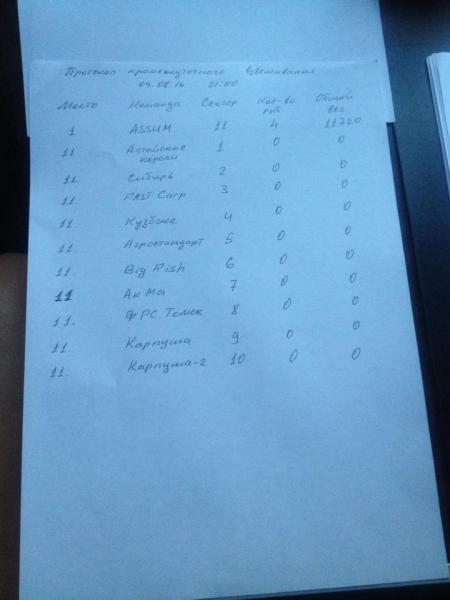 Протокол промежуточного взвешивания
04.08.16 21:00
Место Команда Сектор Кол-во рыб Общий вес
1 ASSUM 11 4 11720
11. Алтайские карпы 1 0 0
11 Сибирь 2 0 0
11. FAST Carp 3 0 0
11. Кузбасс 4 0 0
11. Агростандарт 5 0 0
11. Big Fish 6 0 0
11 Ак Ма 7 0 0
11. ФРС Томск 8 0 0
11 Карпуша 9 0 0
11. Карпуша-2 10 0 0